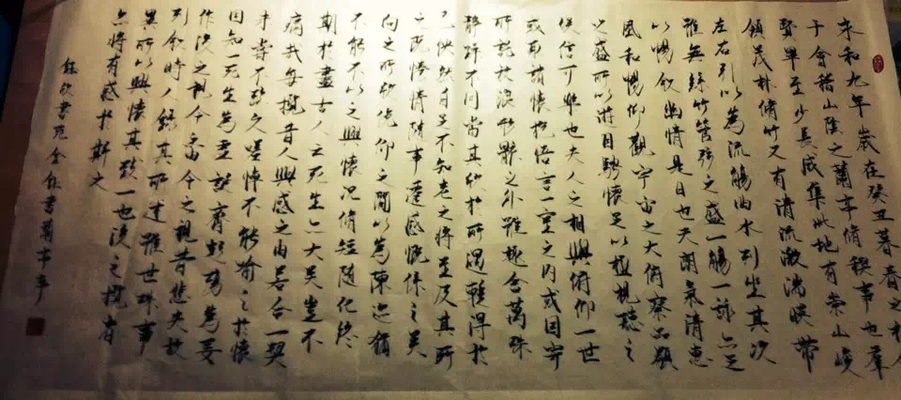 永和九年歲在癸丑暮春之初
于會稽山陰之蘭亭脩禊事也羣
賢畢至少長咸集此地有崇山峻
領茂林脩竹又有清流激湍映帶
左右引以為流觴曲水列坐其次
雖無絲竹管弦之盛一觴一詠亦足
以暢敘幽情是日也天朗氣清惠
風和暢仰觀宇宙之大俯察品類
之盛所以遊目騁懷足以極視聽之
娛信可樂也夫人之相與俯仰一世
或取諸懷抱悟言一室之內或因寄
所託放浪形骸之外雖趣舍萬殊
靜躁不同當其欣於所遇蹔得於
己怏然自足不知老之將至及其所
之既惓情隨事遷感慨係之矣
向之所欣俛仰之間以為陳迹猶
不能不以之興懷況脩短隨化終
期於盡古人云死生亦大矣豈不
痛哉每攬昔人興感之由若合一契
未嘗不臨文嗟悼不能喻之於懷
固知一死生為虛誕齊彭殤為妄
作後之視今亦由今之視昔悲夫故
列敘時人錄其所述雖世殊事
異所以興懷其致一也後之攬者
亦將有感於斯文